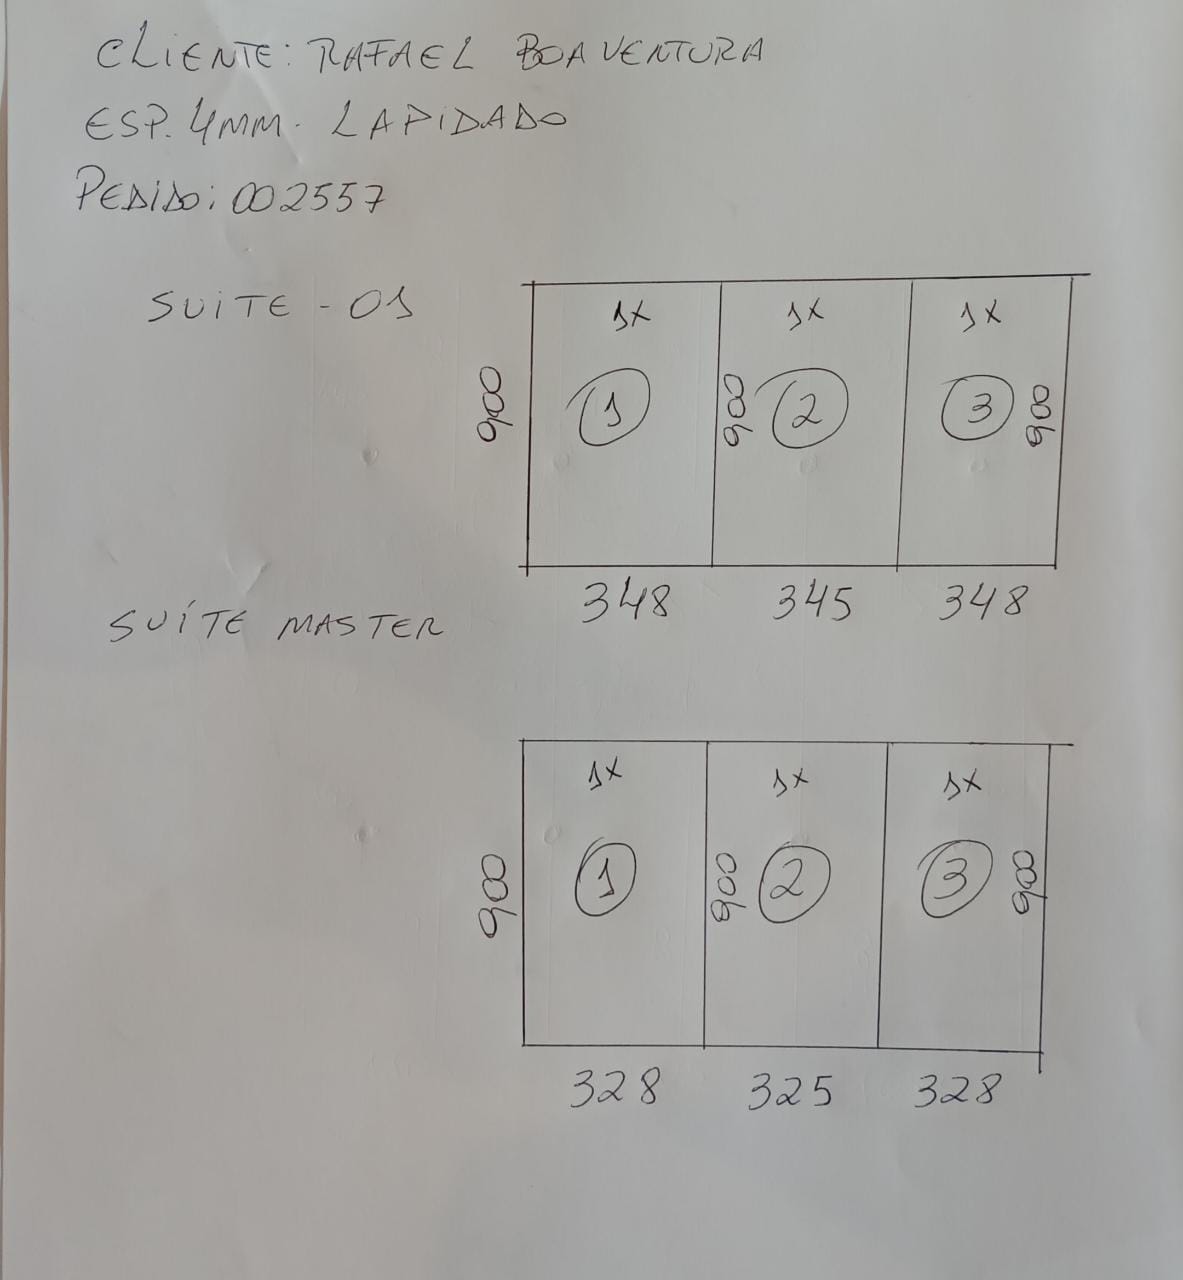 CLIENTE: RAFAEL BOAVENTURA
ESP. 4MM. LAPIDADO
PEDIDO: 002557
SUITE - 01
1X 1X 1X
900 1 900 2 3 900
348 345 348
SUÍTE MASTER
1X 1X 1X
900 1 900 2 3 900
328 325 328